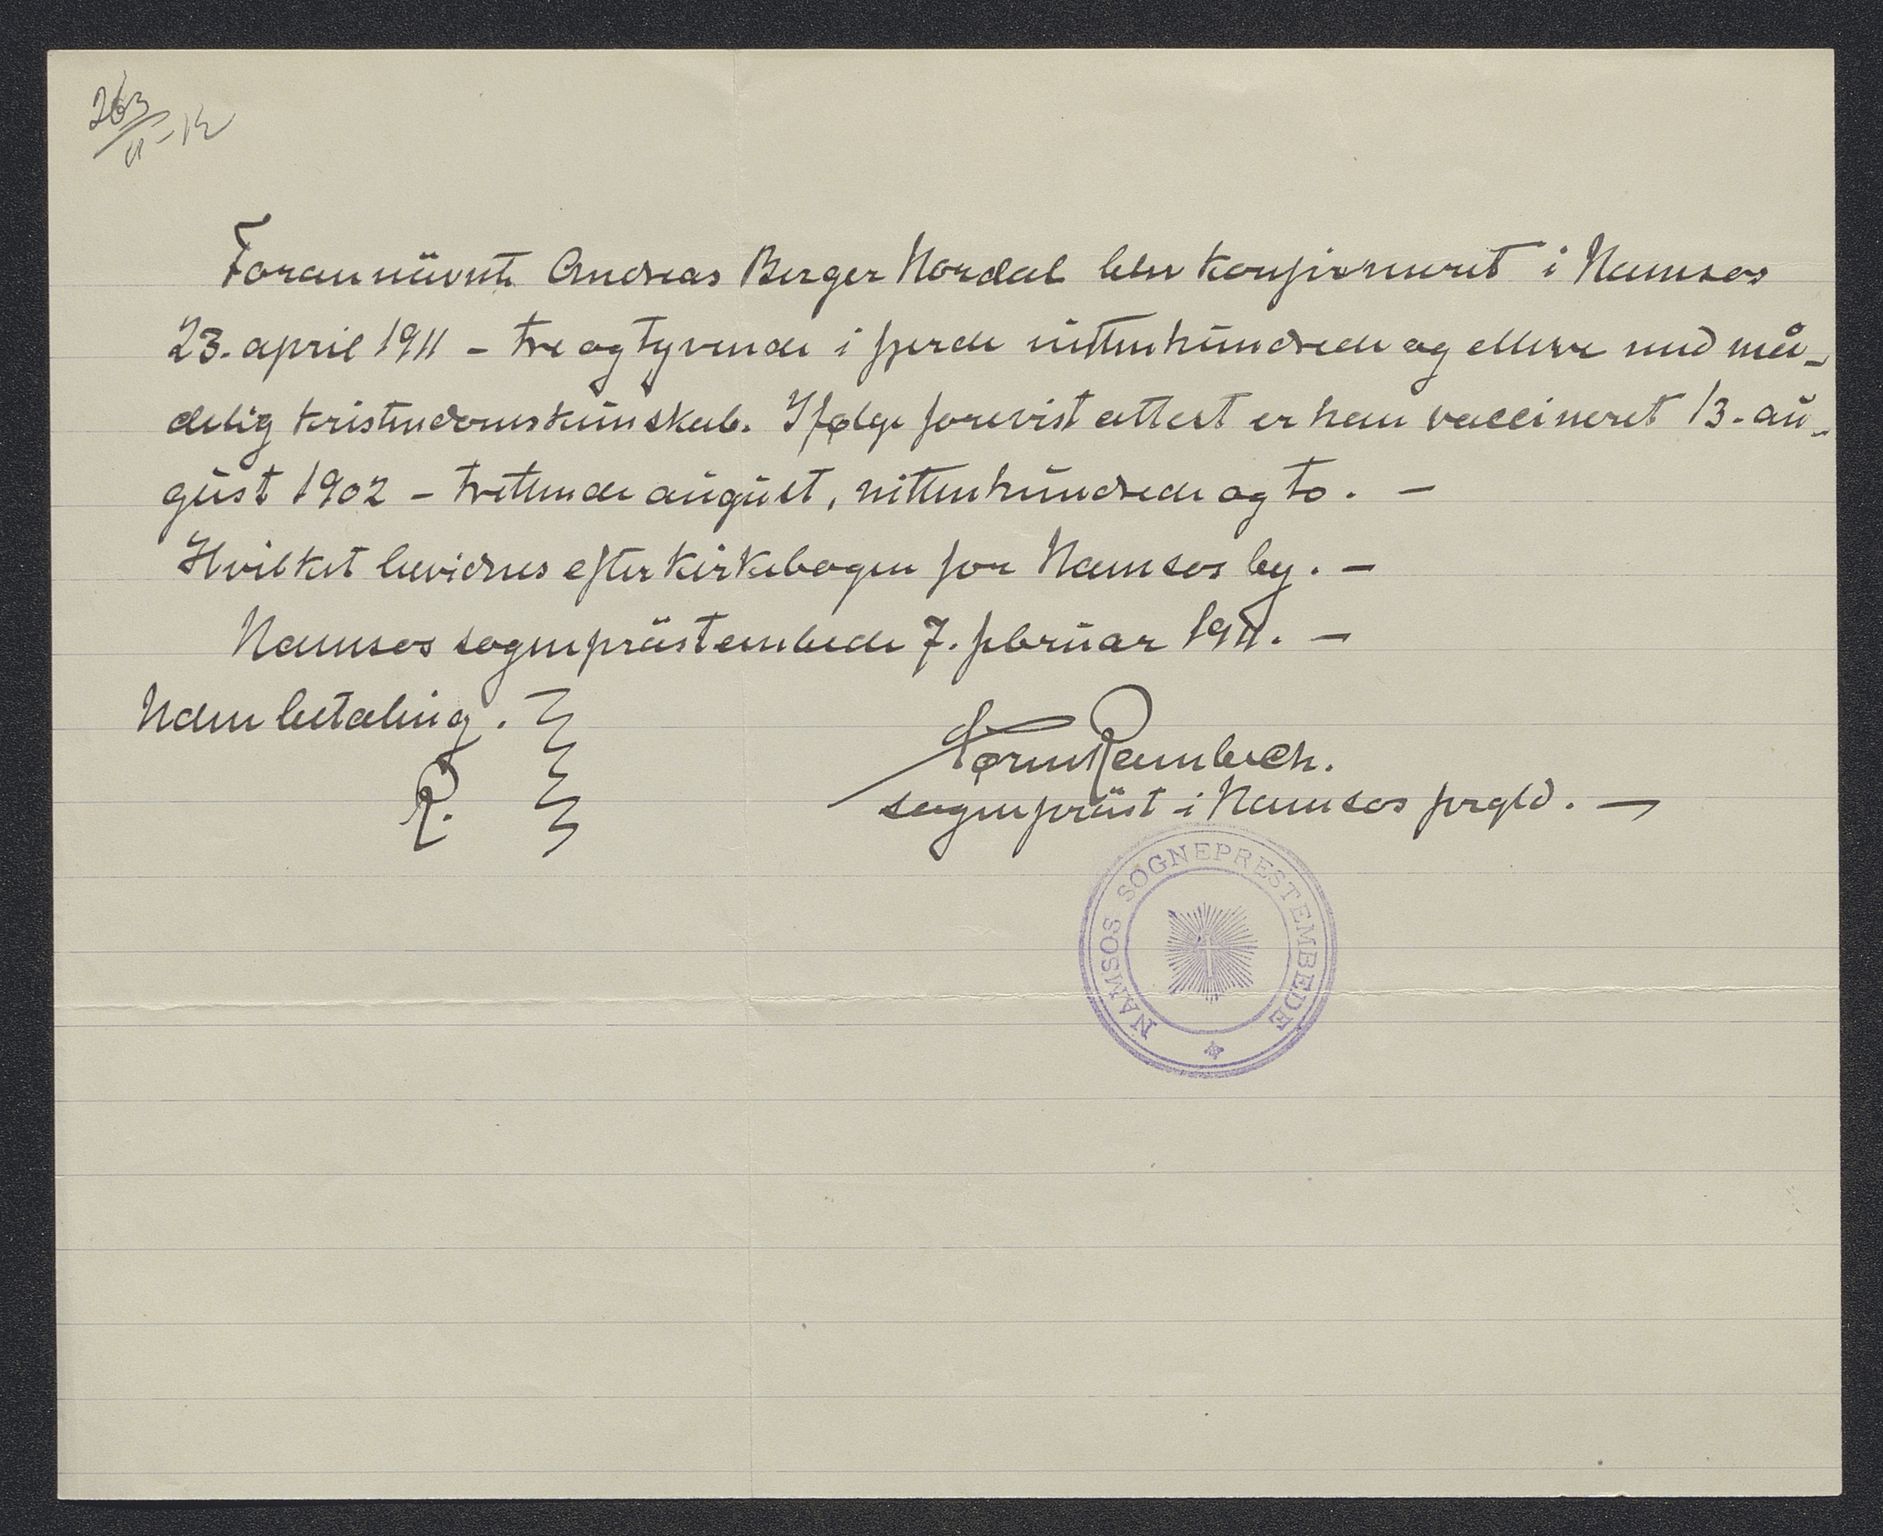 263
Forannävnte Andreas Berger Nordal blev konfirmeret i Namsos
23. april 1911 – tre og tyvende i fjerde nittenhundrede og elleve med må-
delig kristendomskunskab. Ifølge forevist attest er han vaccineret 13. au-
gust 1902 – trettende august, nittenhundrede og to. –
Hvilket bevidnes efter kirkebogen for Namsos by. –
Namsos sogneprästembede 7. februar 1911. –
Uden betaling.
R.
Rambech.
sognepräst i Namsos prgld. –
NAMSOS SOGNEPRESTEMBEDE